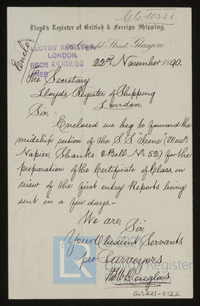 GLS-10321
Lloyd's Register of British & Foreign Shipping,
Street, Glasgow
LLOYD'S REGISTER
LONDON.
RECD 24 NOV. 90
22nd November 1890.
The Secretary
Lloyds Register of Shipping
London
Sir,
Enclosed we beg to forward the
midship section of the S.S.
Napier Shanks & Bell No 52) for the
preparation of the Certificate of Class, in
view of the First Entry Reports being
sent in a few days.
We are
Sir
Your Obedient Servants
Surveyors
Douglas
Lloyd's Register
GLS221-0122